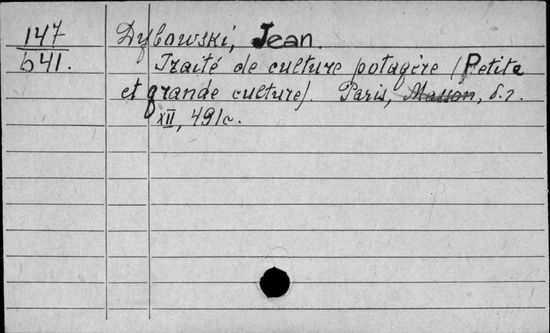 147 Dybowski, Jean.
641. Traité de culture potagère (Petite
et grande culture). Paris, Masson, s.г.
XII, 491с.